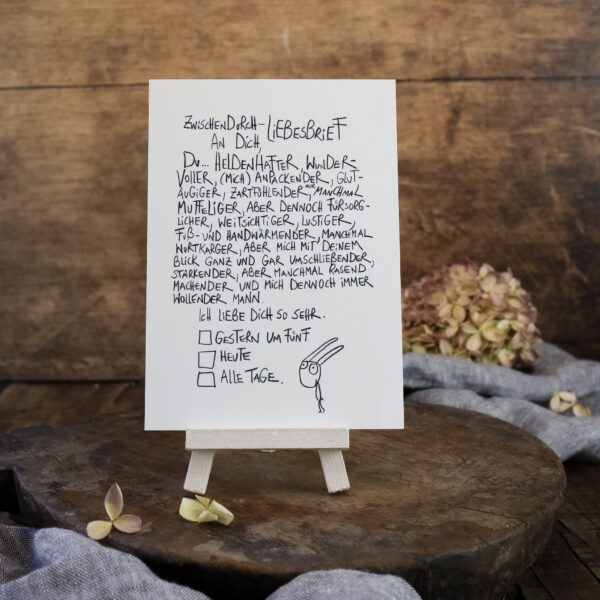 ZWISCHENDURCH-LIEBESBRIEF
AN DICH,
DU... HELDENHAFTER, WUNDER-
VOLLER, (MICH) ANPACKENDER, GLUT-
ÄUGIGER, ZARTFÜHLENDER, MANCHMAL
MUFFELIGER, ABER DENNOCH FÜRSORG-
LICHER, WEITSICHTIGER, LUSTIGER,
FUß- UND HANDWÄRMENDER, MANCHMAL
WORTKARGER, ABER MICH MIT DEINEM
BLICK GANZ UND GAR UMSCHLIEßENDER,
STÄRKENDER, ABER MANCHMAL RASEND
MACHENDER UND MICH DENNOCH IMMER
WOLLENDER MANN.
ICH LIEBE DICH SO SEHR.
GESTERN UM FÜNF
HEUTE
ALLE TAGE.